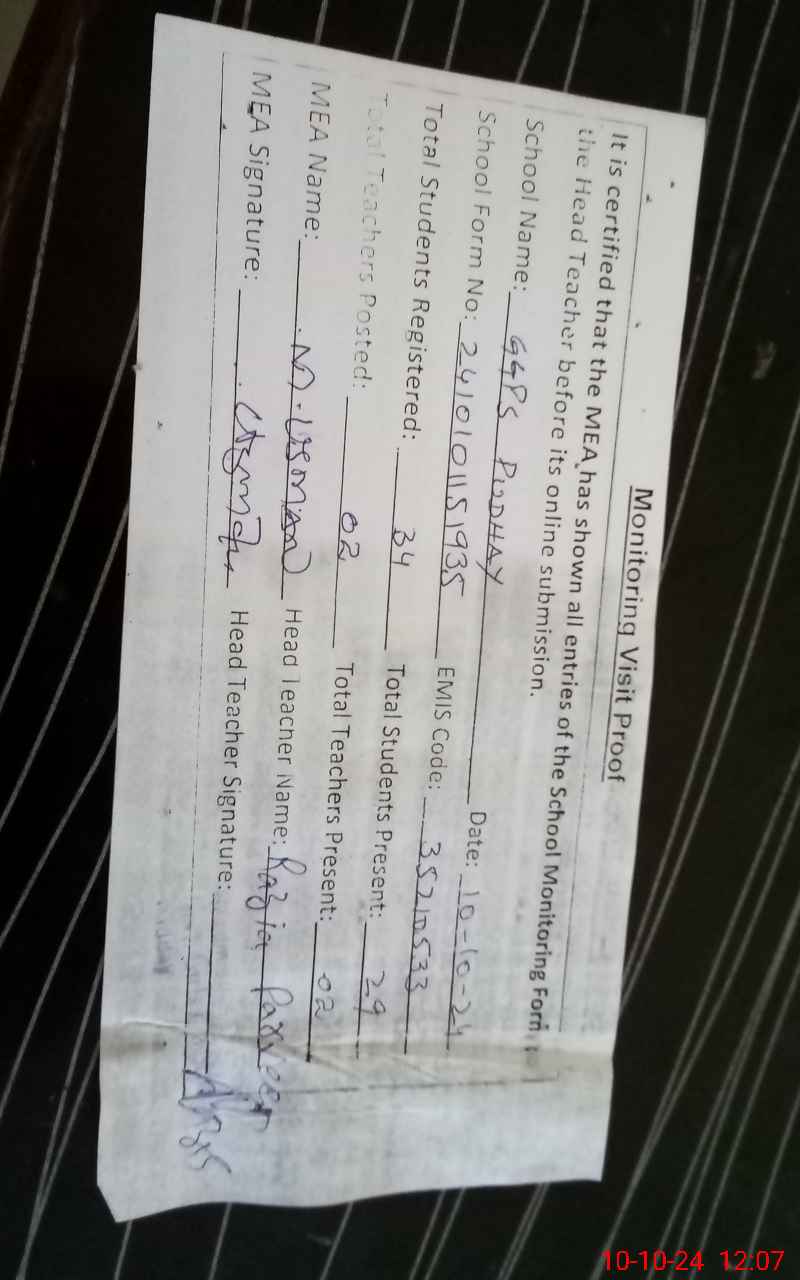 Monitoring Visit Proof
It is certified that the MEA has shown all entries of the School Monitoring Form to
the Head Teacher before its online submission.
School Name: GGPS Date: 10-10-24
School Form No: 2410101151935 EMIS Code: 35210533
Total Students Registered: 34 Total Students Present: 29
Total Teachers Posted: 02 Total Teachers Present: 02
MEA Name: M. Usman Head Teacher Name: Razia Parveen
MEA Signature: Head Teacher Signature:
10-10-24 12:07